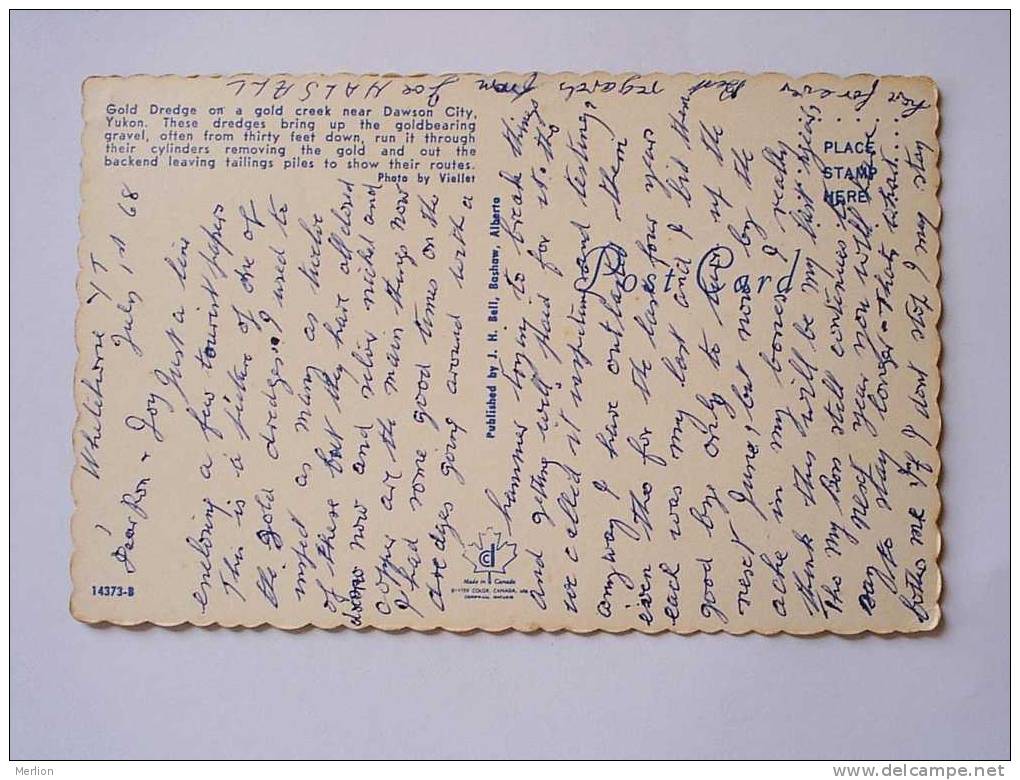 Gold Dredge on a gold creek near Dawson City,
Yukon. These dredges bring up the goldbearing
gravel, often from thirty feet down, run it through
their cylinders removing the gold and out the
backend leaving tailings piles to show their routes.
Photo by Viellet
Whitehorse YT
July 1st 68
Dear Ron & Joy Just a line
enclosing a few tourist papers
This is a picture of one of
the gold dredges. I used to
inspect as many as twelve
of these but they have all closed
down now and silver nickel and
copper are the main things now
I had some good times on the
dredges going around with a
hammer trying to break things
and getting well paid for it tho
we called it inspection and testing,
anyway I have outlasted them
even tho for the last four years
each was my last and I bid them
good bye only to turn up the
next June, but now by the
ache in my bones I really
think this will be my last year,
tho my Boss still continues to
say next year you will have
to stay longer - thats what
bothers me if I dont stop I may stay
here forever
Best regards from Joe HALSALL
Published by J. H. Bell, Bashaw, Alberta
Post Card
PLACE
STAMP
HERE
Made in Canada
14373-B
Merlion
www.delcampe.net